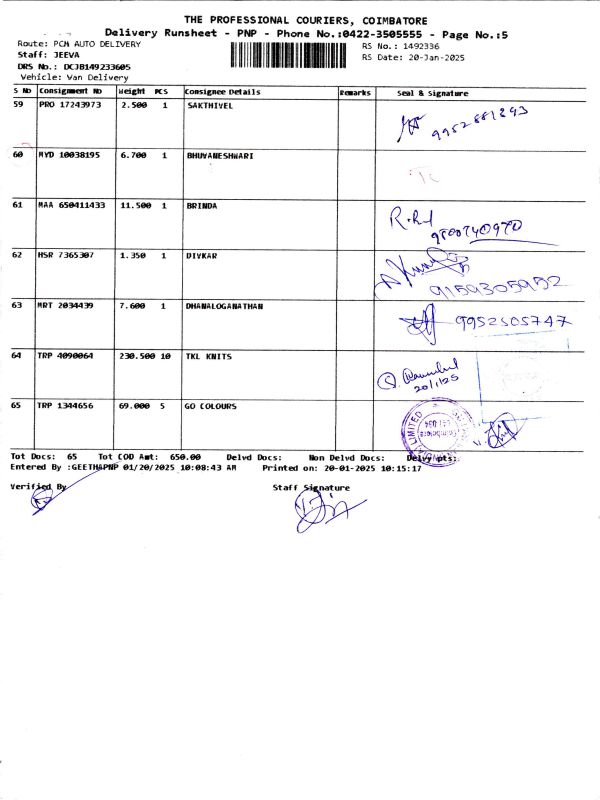 THE PROFESSIONAL COURIERS, COIMBATORE
Delivery Runsheet - PNP - Phone No.:0422-3505555 - Page No.:5
Route: PCM AUTO DELIVERY
RS No.: 1492336
Staff: JEEVA
RS Date: 20-Jan-2025
DRS No.: DCJB149233605
Vehicle: Van Delivery
S No Consignment No Weight PCS Consignee Details Remarks Seal & Signature
59 PRO 17243973 2.500 1 SAKTHIVEL
60 MYD 10038195 6.700 1 BHUVANESHWARI
61 MAA 650411433 11.500 1 BRINDA
62 HSR 7365307 1.350 1 DIVKAR
9159305952
63 MRT 2034439 7.600 1 DHANALOGANATHAN
9952505747
64 TRP 4090064 230.500 10 TKL KNITS
20/1/25
65 TRP 1344656 69.000 5 GO COLOURS
LIMITED
Tot Docs: 65 Tot COD Amt: 650.00 Delvd Docs: Non Delvd Docs: Delvy pts:
Entered By :GEETHAPNP 01/20/2025 10:08:43 AM Printed on: 20-01-2025 10:15:17
Verified By
Staff Signature